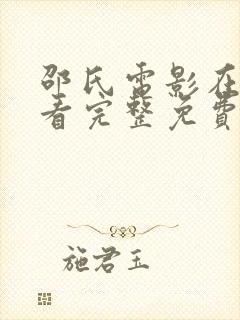 邵氏電影在
看完整免費
施君玉